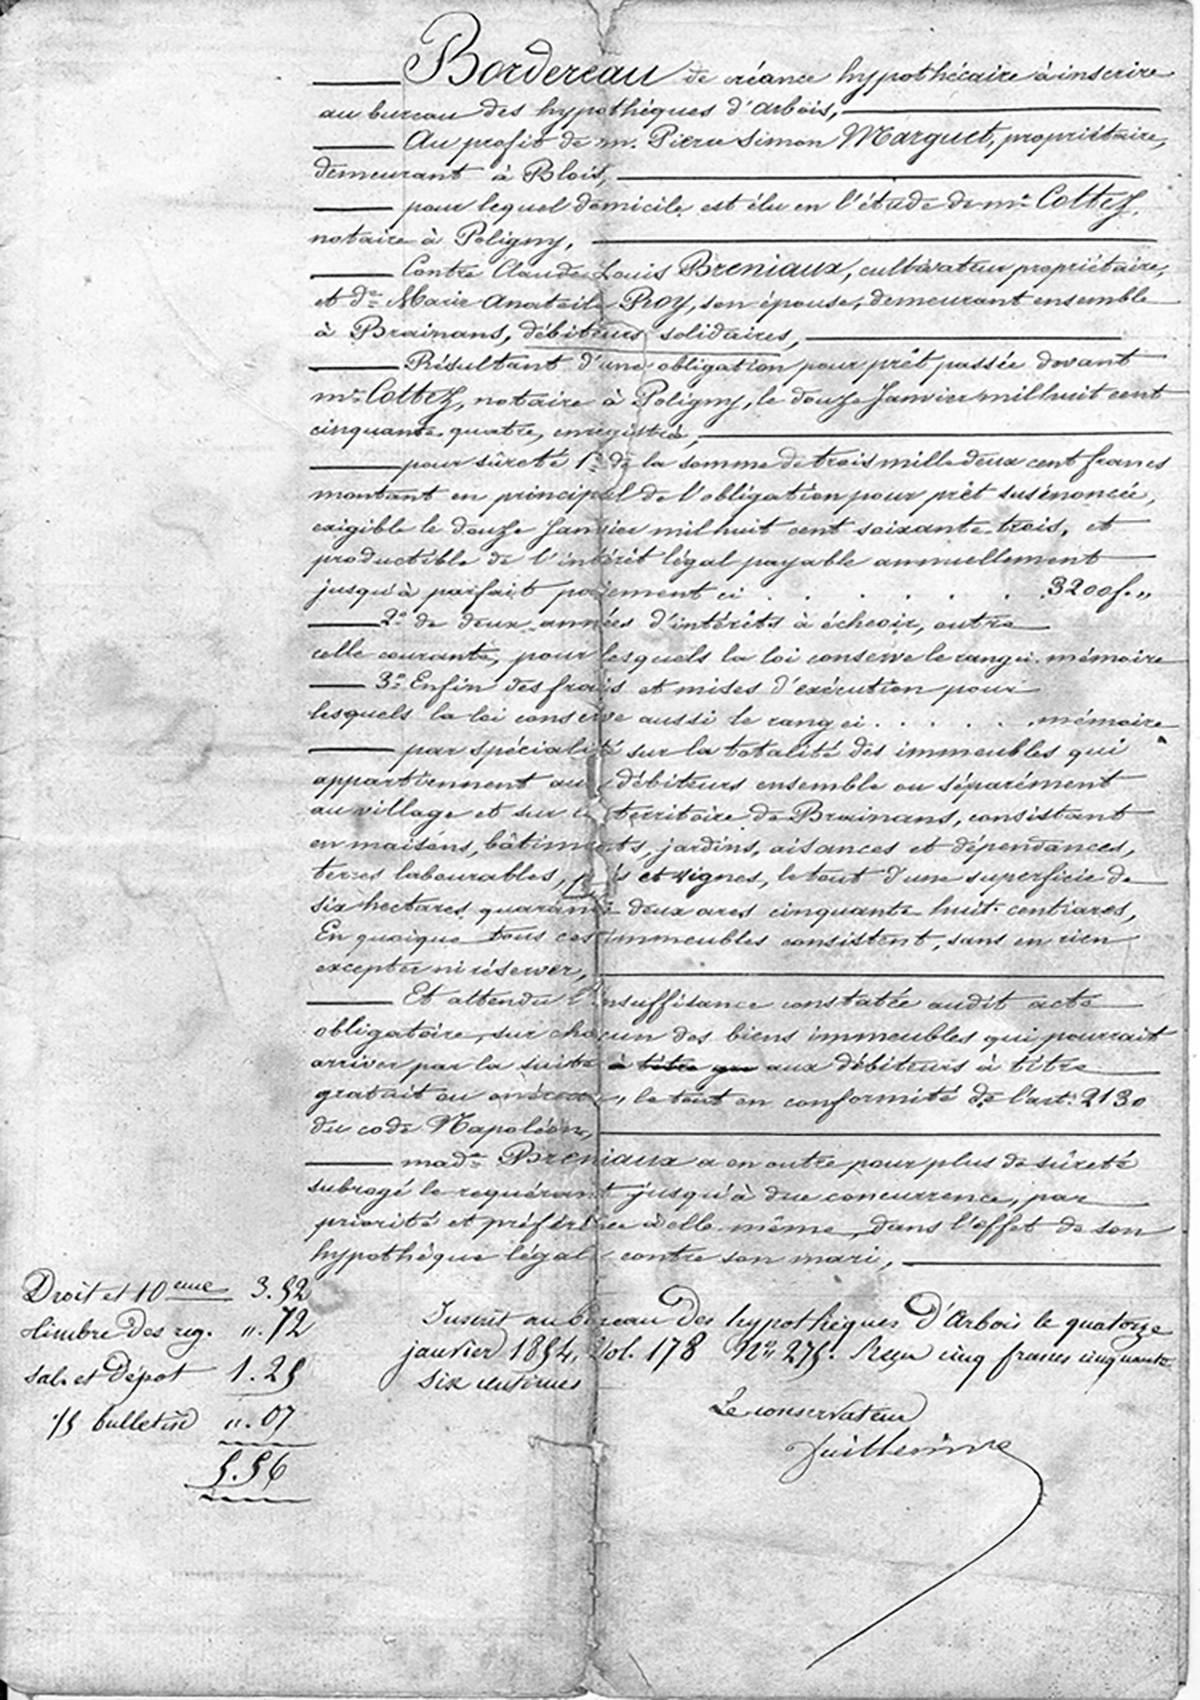 Bordereau de créance hypothécaire à inscrire
au bureau des hypothèques d'Arbois,
Au profit de m. Pierre Simon Marguet, propriétaire,
demeurant à Blois,
pour lequel domicile est élu en l'étude de me Cottez,
notaire à Poligny,
Contre Claude Louis Breniaux, cultivateur propriétaire,
et de Marie Anatoile Roy, son épouse, demeurant ensemble
à Brainans, débiteurs solidaires,
Résultant d'une obligation pour prêt passée devant
me Cottez, notaire à Poligny, le douze Janvier mil huit cent
cinquante quatre, enregistré,
pour sûreté 1o de la somme de trois mille deux cent francs
montant en principal de l'obligation pour prêt susénoncée,
exigible le douze Janvier mil huit cent soixante trois, et
productible de l'intérêt légal payable annuellement
jusqu'à parfait paiement ci . . . . . . 3200f. "
2o de deux années d'intérêts à échoir, outre
celle courante, pour lesquels la loi conserve le rang ci. mémoire
3o Enfin des frais et mises d'exécution pour
lesquels la loi conserve aussi le rang ci . . . . . mémoire
par spécialité sur la totalité des immeubles qui
appartiennent aux débiteurs ensemble ou séparément
au village et sur le territoire de Brainans, consistant
en maisons, bâtiments, jardins, aisances et dépendances,
terres labourables, prés et vignes, le tout d'une superficie de
six hectares quarante deux ares cinquante huit centiares,
En quoique tous ces immeubles consistent, sans en rien
excepter ni réserver,
Et attendu l'insuffisance constatée audit acte
obligatoire, sur chacun des biens immeubles qui pourrait
arriver par la suite à titre gra aux débiteurs à titre
gratuit ou onéreux, le tout en conformité de l'art. 2130
du code Napoléon,
made Breniaux a en outre pour plus de sûreté
subrogé le requérant jusqu'à due concurrence, par
priorité et préférence à elle même, dans l'effet de son
hypothèque légale contre son mari,
Droit et 10eme 3.52
timbre des reg. ". 72
sal. et Dépot 1.25
bulletin ". 07
5.56
Inscrit au bureau des hypothèques d'Arbois le quatorze
janvier 1854, Vol. 178 No 275. Reçu cinq francs cinquante
six centimes
Le conservateur